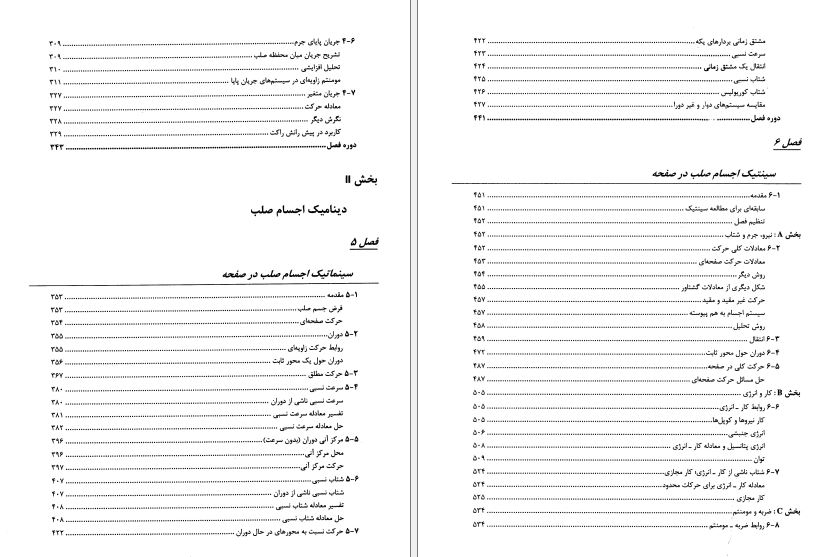 ۴-۶ جریان پایای جرم ۳۰۹
تشریح جریان میان محفظه صلب ۳۰۹
تحلیل افزایشی ۳۱۰
مومنتم زاویه‌ای در سیستم‌های جریان پایا ۳۱۱
۴-۷ جریان متغیر ۳۲۷
معادله حرکت ۳۲۷
نگرش دیگر ۳۲۸
کاربرد در پیش رانش راکت ۳۲۹
دوره فصل ۳۴۳
بخش II
دینامیک اجسام صلب
فصل ۵
سینماتیک اجسام صلب در صفحه
۵-۱ مقدمه ۳۵۳
فرض جسم صلب ۳۵۳
حرکت صفحه‌ای ۳۵۴
۵-۲ دوران ۳۵۵
روابط حرکت زاویه‌ای ۳۵۵
دوران حول یک محور ثابت ۳۵۶
۵-۳ حرکت مطلق ۳۶۷
۵-۴ سرعت نسبی ۳۸۰
سرعت نسبی ناشی از دوران ۳۸۰
تفسیر معادله سرعت نسبی ۳۸۱
حل معادله سرعت نسبی ۳۸۲
۵-۵ مرکز آنی دوران (بدون سرعت) ۳۹۶
محل مرکز آنی ۳۹۶
حرکت مرکز آنی ۳۹۷
۵-۶ شتاب نسبی ۴۰۷
شتاب نسبی ناشی از دوران ۴۰۷
تفسیر معادله شتاب نسبی ۴۰۸
حل معادله شتاب نسبی ۴۰۸
۵-۷ حرکت نسبت به محورهای در حال دوران ۴۲۲
مشتق زمانی بردارهای یکه ۴۲۲
سرعت نسبی ۴۲۳
انتقال یک مشتق زمانی ۴۲۴
شتاب نسبی ۴۲۵
شتاب کوریولیس ۴۲۶
مقایسه سیستم‌های دوار و غیر دوار ۴۲۷
دوره فصل ۴۴۱
فصل ۶
سینتیک اجسام صلب در صفحه
۶-۱ مقدمه ۴۵۱
سابقه‌ای برای مطالعه سینتیک ۴۵۱
تنظیم فصل ۴۵۲
بخش A : نیرو، جرم و شتاب ۴۵۲
۶-۲ معادلات کلی حرکت ۴۵۲
معادلات حرکت صفحه‌ای ۴۵۳
روش دیگر ۴۵۴
شکل دیگری از معادلات گشتاور ۴۵۵
حرکت غیر مقید و مقید ۴۵۷
سیستم اجسام به هم پیوسته ۴۵۷
روش تحلیل ۴۵۸
۶-۳ انتقال ۴۵۹
۶-۴ دوران حول محور ثابت ۴۷۲
۶-۵ حرکت کلی در صفحه ۴۸۷
حل مسائل حرکت صفحه‌ای ۴۸۷
بخش B : کار و انرژی ۵۰۵
۶-۶ روابط کار ـ انرژی ۵۰۵
کار نیروها و کوپل‌ها ۵۰۵
انرژی جنبشی ۵۰۶
انرژی پتانسیل و معادله کار ـ انرژی ۵۰۸
توان ۵۰۹
۶-۷ شتاب ناشی از کار ـ انرژی؛ کار مجازی ۵۲۴
معادله کار ـ انرژی برای حرکات محدود ۵۲۴
کار مجازی ۵۲۵
بخش C : ضربه و مومنتم ۵۳۴
۶-۸ روابط ضربه ـ مومنتم ۵۳۴